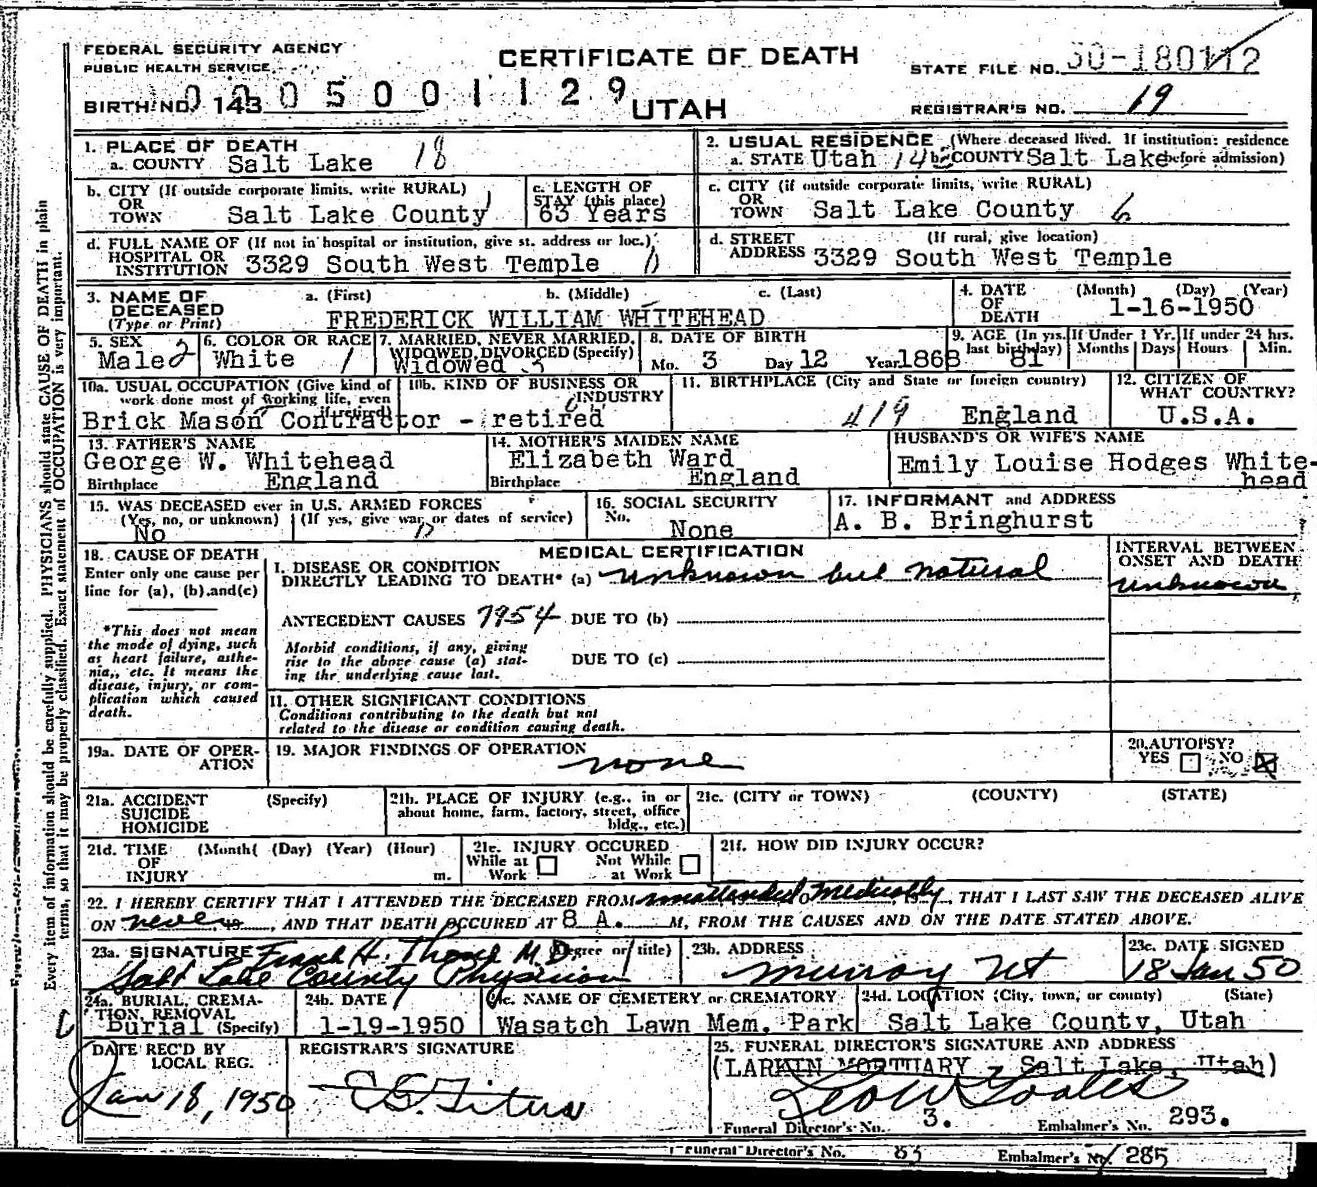 FEDERAL SECURITY AGENCY
PUBLIC HEALTH SERVICE
CERTIFICATE OF DEATH
STATE FILE NO. 50-180112
BIRTH NO. 143
0005001129
UTAH
REGISTRAR'S NO. 19
1. PLACE OF DEATH
a. COUNTY Salt Lake 18
2. USUAL RESIDENCE (Where deceased lived. If institution: residence
a. STATE Utah 14 b. COUNTY Salt Lake before admission)
b. CITY (If outside corporate limits, write RURAL)
OR
TOWN Salt Lake County
c. LENGTH OF
STAY (this place)
63 Years
c. CITY (if outside corporate limits, write RURAL)
OR
TOWN Salt Lake County 6
d. FULL NAME OF (If not in hospital or institution, give st. address or loc.)
HOSPITAL OR
INSTITUTION 3329 South West Temple
d. STREET (If rural, give location)
ADDRESS 3329 South West Temple
3. NAME OF DECEASED
(Type or Print)
a. (First) b. (Middle) c. (Last)
FREDERICK WILLIAM WHITEHEAD
4. DATE OF DEATH (Month) (Day) (Year)
1-16-1950
5. SEX
Male 2
6. COLOR OR RACE
White 1
7. MARRIED, NEVER MARRIED,
WIDOWED, DIVORCED (Specify)
Widowed 3
8. DATE OF BIRTH
Mo. 3 Day 12 Year 1868
9. AGE (In yrs. last birthday) 81
If Under 1 Yr.
Months Days
If under 24 hrs.
Hours Min.
10a. USUAL OCCUPATION (Give kind of
work done most of working life, even
if retired)
10b. KIND OF BUSINESS OR
INDUSTRY
Brick Mason Contractor - retired
11. BIRTHPLACE (City and State or foreign country)
419 England
12. CITIZEN OF
WHAT COUNTRY?
U.S.A.
13. FATHER'S NAME
George W. Whitehead
Birthplace England
14. MOTHER'S MAIDEN NAME
Elizabeth Ward
Birthplace England
HUSBAND'S OR WIFE'S NAME
Emily Louise Hodges White-
head
15. WAS DECEASED ever in U.S. ARMED FORCES
(Yes, no, or unknown) (If yes, give war or dates of service)
No
16. SOCIAL SECURITY
No. None
17. INFORMANT and ADDRESS
A. B. Bringhurst
18. CAUSE OF DEATH
Enter only one cause per
line for (a), (b), and (c)
*This does not mean
the mode of dying, such
as heart failure, asthe-
nia, etc. It means the
disease, injury, or com-
plication which caused
death.
MEDICAL CERTIFICATION
I. DISEASE OR CONDITION
DIRECTLY LEADING TO DEATH* (a) unknown but natural
INTERVAL BETWEEN
ONSET AND DEATH
unknown
ANTECEDENT CAUSES 7954 DUE TO (b)
Morbid conditions, if any, giving
rise to the above cause (a) stat-
ing the underlying cause last.
DUE TO (c)
II. OTHER SIGNIFICANT CONDITIONS
Conditions contributing to the death but not
related to the disease or condition causing death.
19a. DATE OF OPER-
ATION
19. MAJOR FINDINGS OF OPERATION
none
20. AUTOPSY?
YES NO
21a. ACCIDENT (Specify)
SUICIDE
HOMICIDE
21b. PLACE OF INJURY (e.g., in or
about home, farm, factory, street, office
bldg., etc.)
21c. (CITY or TOWN) (COUNTY) (STATE)
21d. TIME (Month( (Day) (Year) (Hour)
OF
INJURY m.
21e. INJURY OCCURED
While at Work
Not While at Work
21f. HOW DID INJURY OCCUR?
22. I HEREBY CERTIFY THAT I ATTENDED THE DECEASED FROM unattended medically, THAT I LAST SAW THE DECEASED ALIVE
ON never, AND THAT DEATH OCCURED AT 8 A. M, FROM THE CAUSES AND ON THE DATE STATED ABOVE.
23a. SIGNATURE (Degree or title)
Frank H. M.D.
Salt Lake County Physician
23b. ADDRESS
Murray Ut
23c. DATE SIGNED
18 Jan 50
24a. BURIAL, CREMA-
TION, REMOVAL
Burial (Specify)
24b. DATE
1-19-1950
24c. NAME OF CEMETERY or CREMATORY
Wasatch Lawn Mem. Park
24d. LOCATION (City, town, or county) (State)
Salt Lake County, Utah
DATE REC'D BY
LOCAL REG.
Jan 18, 1950
REGISTRAR'S SIGNATURE
25. FUNERAL DIRECTOR'S SIGNATURE AND ADDRESS
(LARKIN MORTUARY - Salt Lake, Utah)
Funeral Director's No. 3. Embalmer's No. 293.
Funeral Director's No. 83 Embalmer's No. 285
Every item of information should be carefully supplied. PHYSICIANS should state CAUSE OF DEATH in plain
terms, so that it may be properly classified. Exact statement of OCCUPATION is very important.